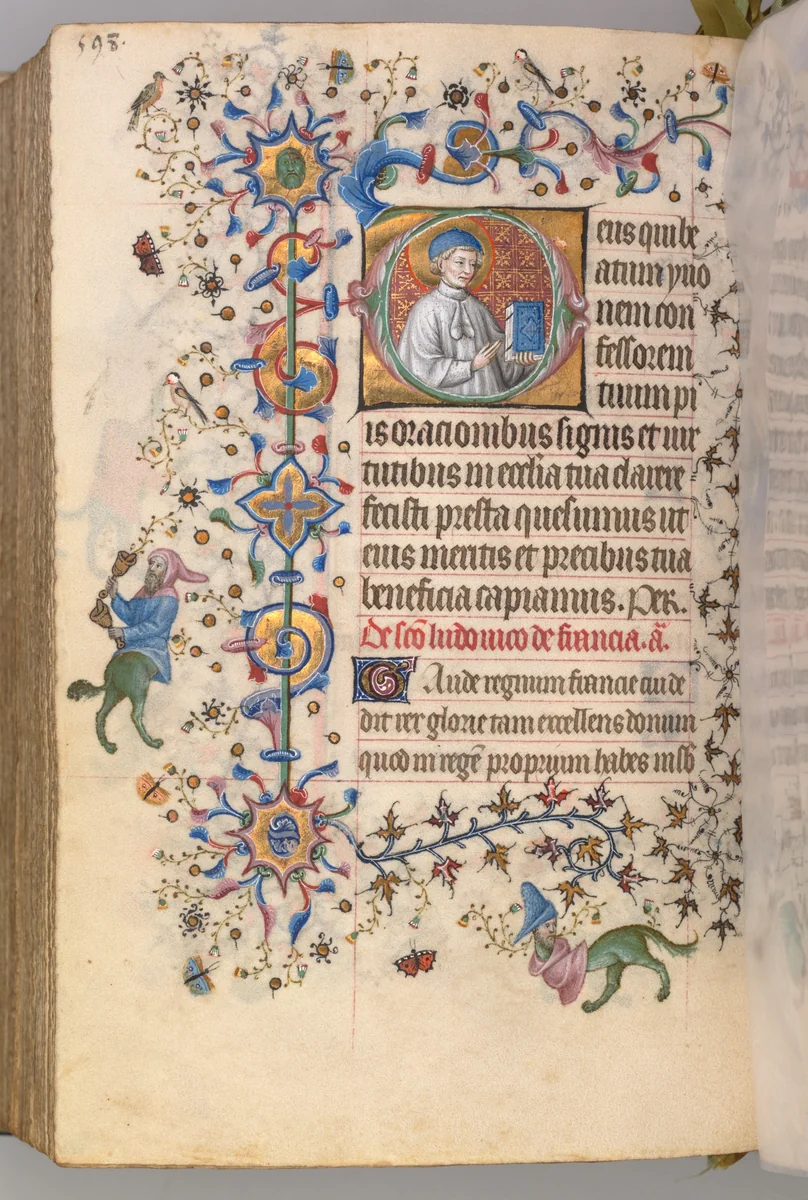 598.
Deus qui be
atum yuo
nem con
fessorem
tuum pi
is oracionibus signis et uir
tutibus in ecclia tua clarere
fecisti presta quesumus ut
eius meritis et precibus tua
beneficia capiamus. Per.
De sco ludouico de francia. a.
Gaude regnum francie cui de
dit rex glorie tam excellens donum
quod in rege proprium habes